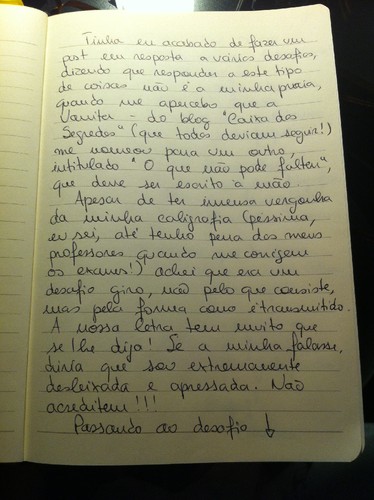 Tinha eu acabado de fazer um
post em resposta a vários desafios,
dizendo que responder a este tipo
de coisas não é a minha praia,
quando me apercebo que a
Vanita - do blog "Caixa dos
Segredos" (que todos deviam seguir!)
me nomeou para um outro,
intitulado "O que não pode faltar",
que deve ser escrito à mão.
Apesar de ter imensa vergonha
da minha caligrafia (péssima,
eu sei, até tenho pena dos meus
professores quando me corrigem
os exames!) achei que era um
desafio giro, não pelo que consiste,
mas pela forma como é transmitido.
A nossa letra tem muito que
se lhe diga! Se a minha falasse,
diria que sou extremamente
desleixada e apressada. Não
acreditem!!!
Passando ao desafio ↓